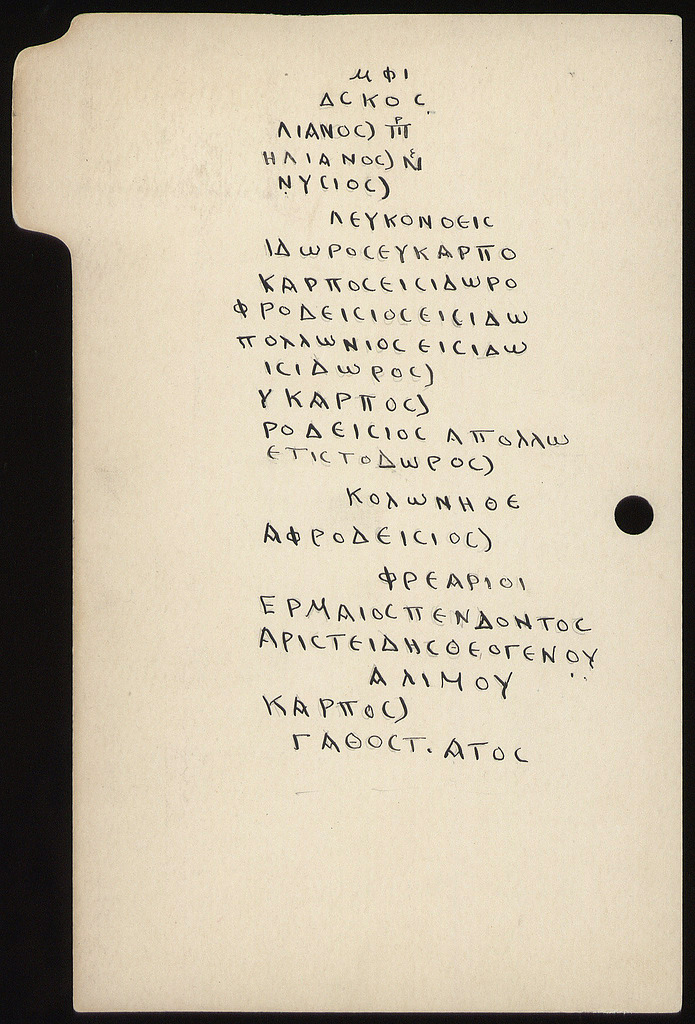 μ Φ Ι
Δ C Κ Ο C
ΛΙΑΝΟC)
ΗΛΙΑΝΟC)
ΝΥCΙΟC)
ΛΕΥΚΟΝΟΕΙC
ΙΔωΡΟCΕΥΚΑΡΠΟ
ΚΑΡΠΟCΕΙCΙΔωΡΟ
ΦΡΟΔΕΙCΙΟCΕΙCΙΔω
ΠΟΛΛωΝΙΟCΕΙCΙΔω
ΙCΙΔωΡΟC)
ΥΚΑΡΠΟC)
ΡΟΔΕΙCΙΟC ΑΠΟΛΛω
ΕΤΙCΤΟΔωΡΟC)
ΚΟΛωΝΗΘΕ
ΑΦΡΟΔΕΙCΙΟC)
ΦΡΕΑΡΙΟΙ
ΕΡΜΑΙΟCΠΕΝΔΟΝΤΟC
ΑΡΙCΤΕΙΔΗCΘΕΟΓΕΝΟΥ
ΑΛΙΜΟΥ
ΚΑΡΠΟC)
ΓΑΘΟCΤ.ΑΤΟC